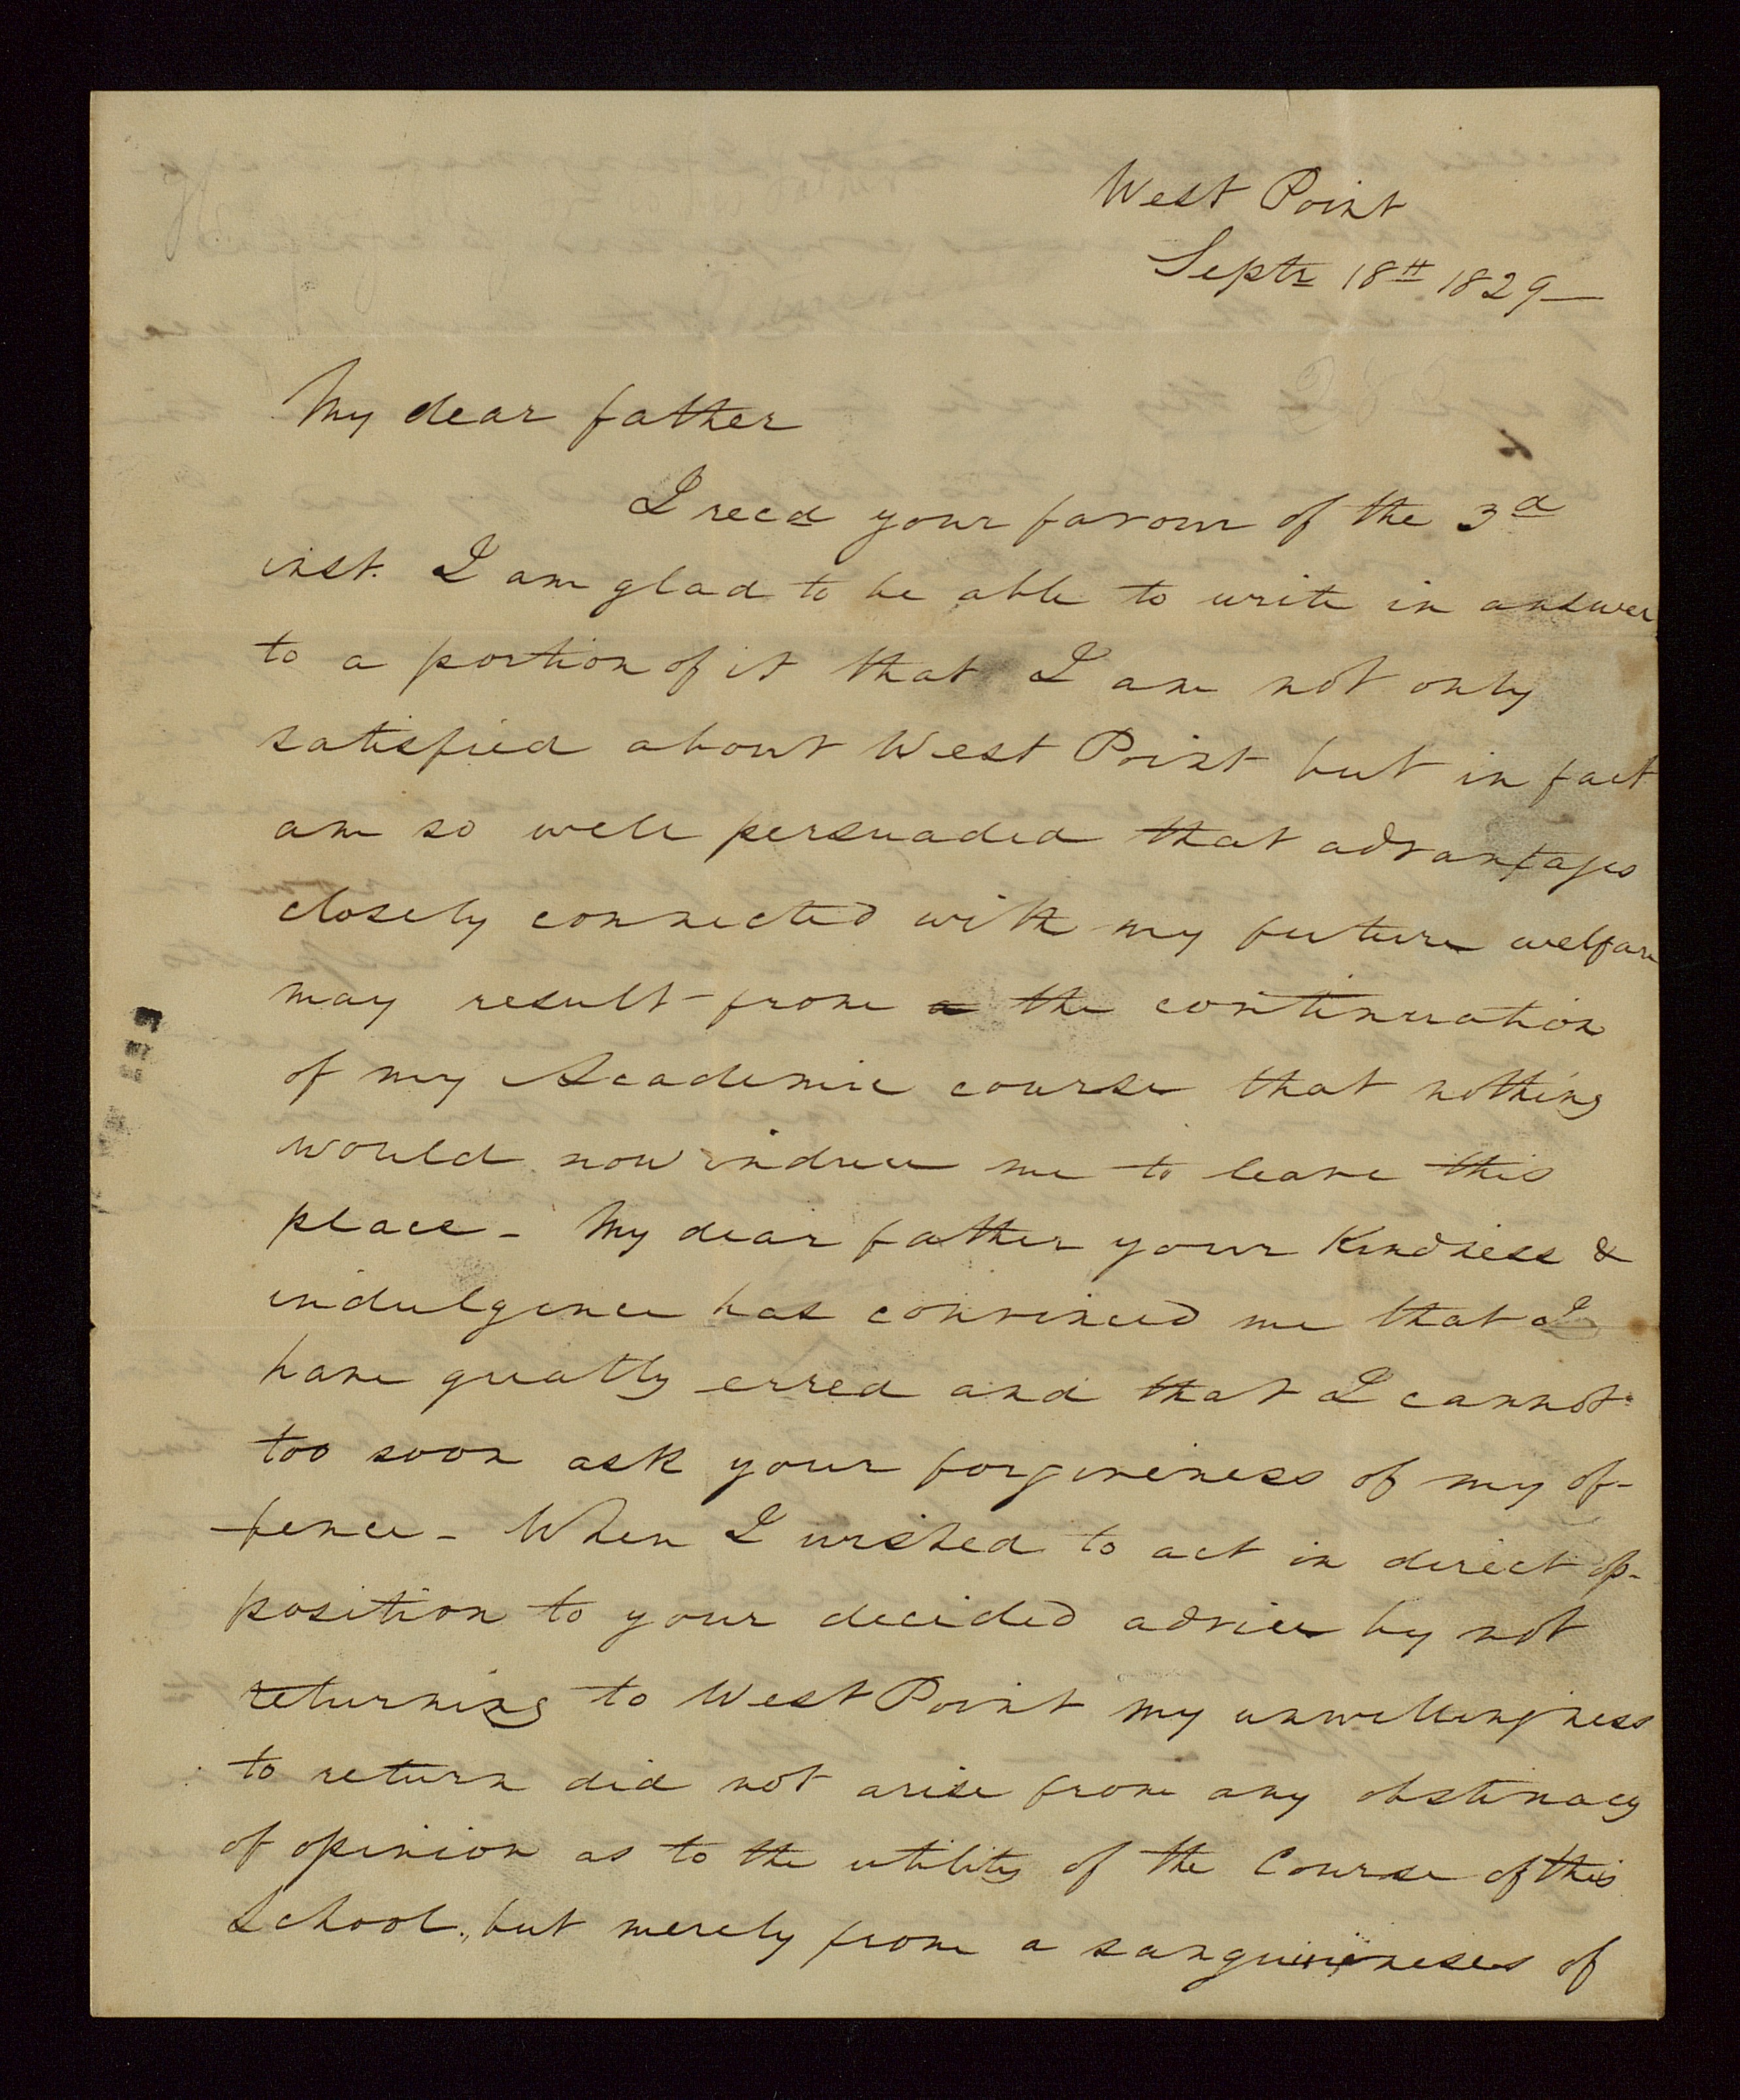 West Point
Septr 18th 1829—
My dear father
I recd your favour of the 3d
inst. I am glad to be able to write in answer
to a portion of it that I am not only
satisfied about West Point but in fact
am so well persuaded that advantages
closely connected with my future welfare
may result from a the continuation
of my Academic course that nothing
would now induce me to leave this
place - My dear father your Kindness &
indulgence has convinced me that I
have greatly erred and that I cannot
too soon ask your forgiveness of my of-
fence - When I wished to act in direct op-
position to your decided advice by not
returning to West Point my unwillingness
to return did not arise from any obstinacy
of opinion as to the utility of the Course of this
School, but merely from a sanguineness of